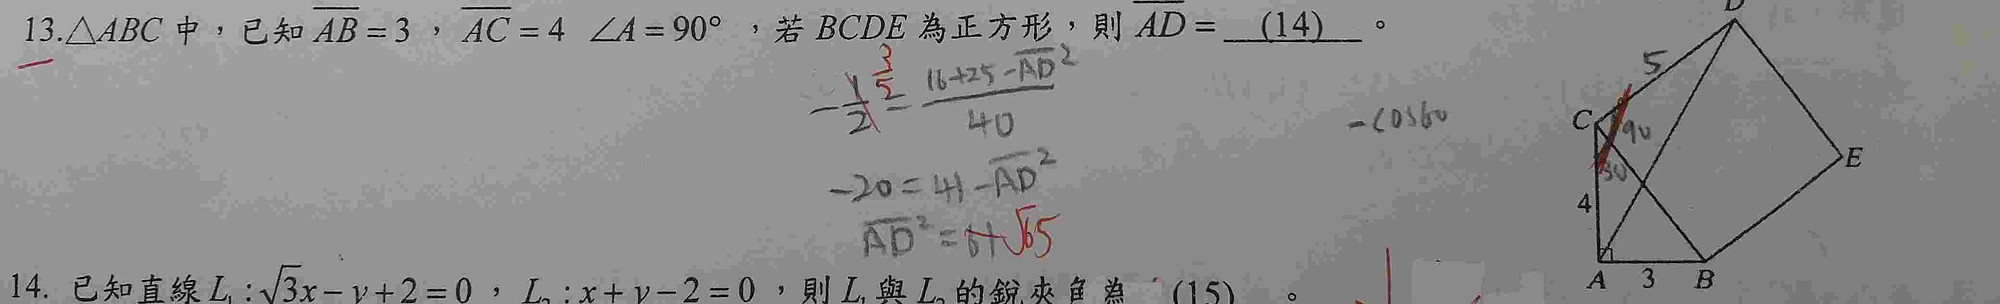 13.△ABC 中，已知 AB = 3 ， AC = 4 ∠A = 90° ，若 BCDE 為正方形，則 AD = (14) 。
-1/2 3/5 = (16+25-AD²)/40
-cos60
-20 = 41 - AD²
AD² = 61 √65
D
5
C
90
30
E
4
A 3 B
14. 已知直線 L₁ : √3x − y + 2 = 0 ， L₂ : x + y − 2 = 0 ，則 L₁ 與 L₂ 的銳夾角為 (15) 。